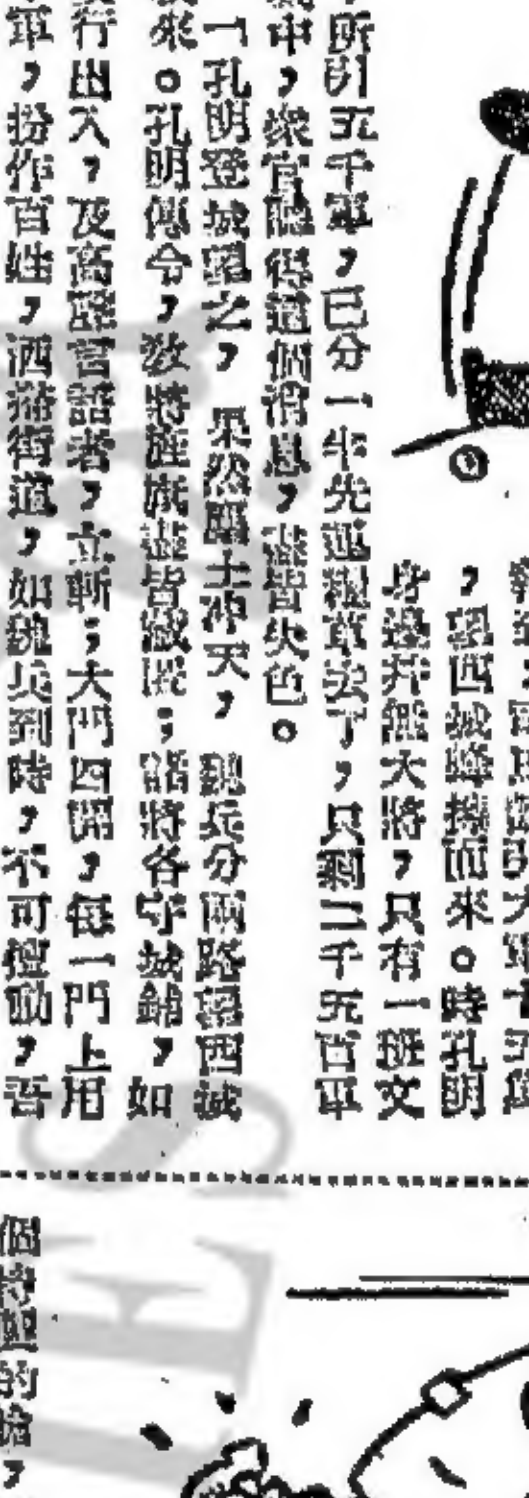 ，望西城蜂擁而來。時孔明
身邊并無大將，只有一班文
所引五千軍，已分一半先運糧草去了，只剩二千五百軍
中，衆官聽得這個消息，盡皆失色。
一孔明登城望之，果然塵土冲天，魏兵分兩路望西城
來。孔明傳令，敎將旌旗盡皆藏匿；諸將各守城鋪，如
行出入，及高聲言語者，立斬；大門四開，每一門上用
軍，扮作百姓，洒掃街道，如魏兵到時，不可擅動，吾
個
的